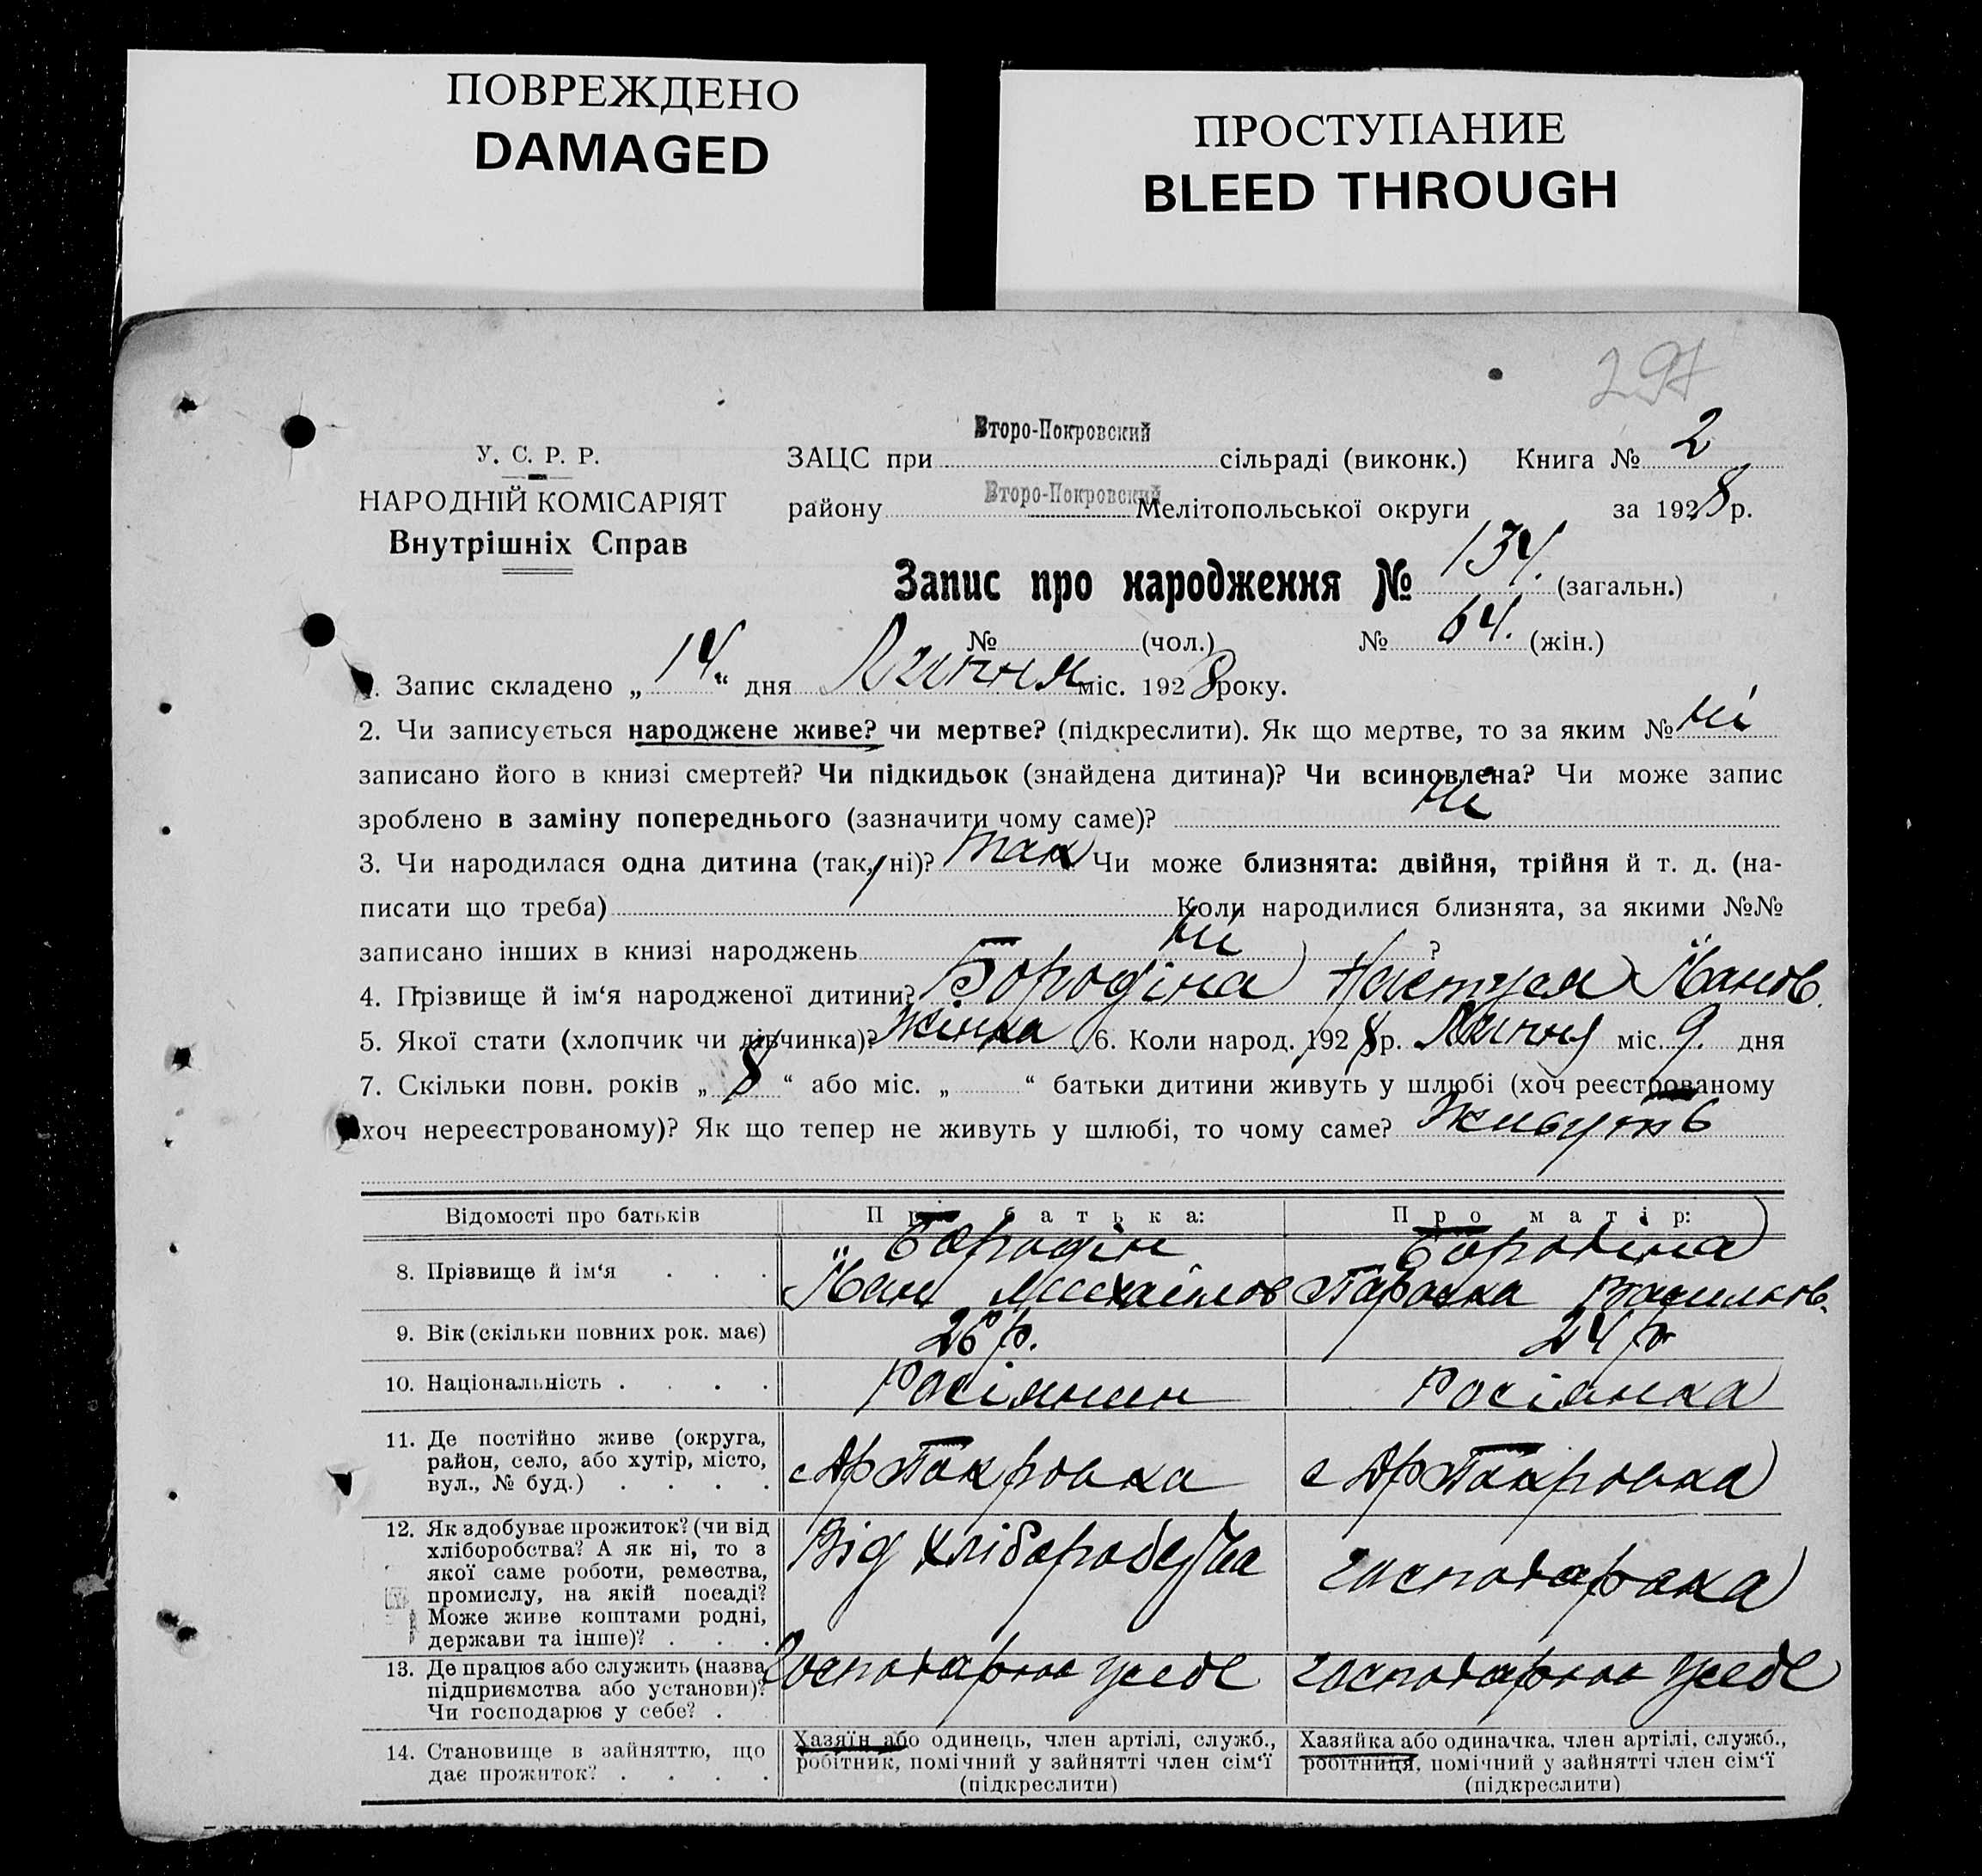 ПОВРЕЖДЕНО
DAMAGED
ПРОСТУПАНИЕ
BLEED THROUGH
297
У. С. Р. Р.
НАРОДНІЙ КОМІСАРІЯТ
Внутрішніх Справ
Второ-Покровский
ЗАЦС при сільраді (виконк.) Книга № 2
району Второ-Покровский Мелітопольської округи за 1928 р.
Запис про народження № 134. (загальн.)
№ (чол.) № 64. (жін.)
1. Запис складено „14“ дня Липня міс. 1928 року.
2. Чи записується народжене живе? чи мертве? (підкреслити). Як що мертве, то за яким № ні
записано його в книзі смертей? Чи підкидьок (знайдена дитина)? Чи всиновлена? Чи може запис
зроблено в заміну попереднього (зазначити чому саме)? ні
3. Чи народилася одна дитина (так, ні)? так Чи може близнята: двійня, трійня й т. д. (на-
писати що треба) Коли народилися близнята, за якими №№
записано інших в книзі народжень ні ?
4. Прізвище й ім‘я народженої дитини? Бородіна Настуся Іванов.
5. Якої стати (хлопчик чи дівчинка)? жінка 6. Коли народ. 1928 р. Липня міс. 9. дня
7. Скільки повн. років „8“ або міс. „ “ батьки дитини живуть у шлюбі (хоч реєстрованому
хоч нереєстрованому)? Як що тепер не живуть у шлюбі, то чому саме? Живуть
Відомості про батьків Про батька: Про матір:
8. Прізвище й ім‘я Бородін Бородіна
Іван Михайлов Параска Васильов.
9. Вік (скільки повних рок. має) 26 р. 24 р.
10. Національність Росіянин Росіянка
11. Де постійно живе (округа,
район, село, або хутір, місто,
вул., № буд.) Покровка Покровка
12. Як здобуває прожиток? (чи від
хліборобства? А як ні, то з
якої саме роботи, ремества,
промислу, на якій посаді?
Може живе коштами родні,
держави та інше)? Від хліборобства господарка
13. Де працює або служить (назва
підприємства або установи)?
Чи господарює у себе? Господарює усебе господарює усебе
14. Становище в зайняттю, що
дає прожиток?
Хазяїн або одинець, член артілі, служб.,
робітник, помічний у зайнятті член сім‘ї
(підкреслити)
Хазяйка або одиначка. член артілі, служб.,
робітниця, помічний у зайнятті член сім‘ї
(підкреслити)